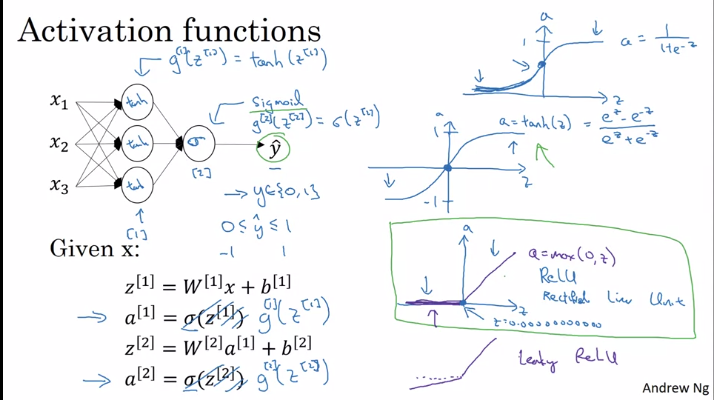 Activation functions
g^[1](z^[1]) = tanh(z^[1])
x₁
x₂
x₃
tanh
tanh
tanh
[1]
σ
[2]
sigmoid
g^[2](z^[2]) = σ(z^[2])
ŷ
→ y∈{0,1}
0 ≤ ŷ ≤ 1
-1 1
Given x:
z^[1] = W^[1]x + b^[1]
→ a^[1] = σ(z^[1]) g^[1](z^[1])
z^[2] = W^[2]a^[1] + b^[2]
→ a^[2] = σ(z^[2]) g^[2](z^[2])
a
1
z
a = 1/(1+e^-z)
a
1
-1
z
a = tanh(z) = (e^z - e^-z)/(e^z + e^-z)
a
z
a = max(0,z)
ReLU
Rectified Linear Unit
z=0.000000000000
Leaky ReLU
Andrew Ng